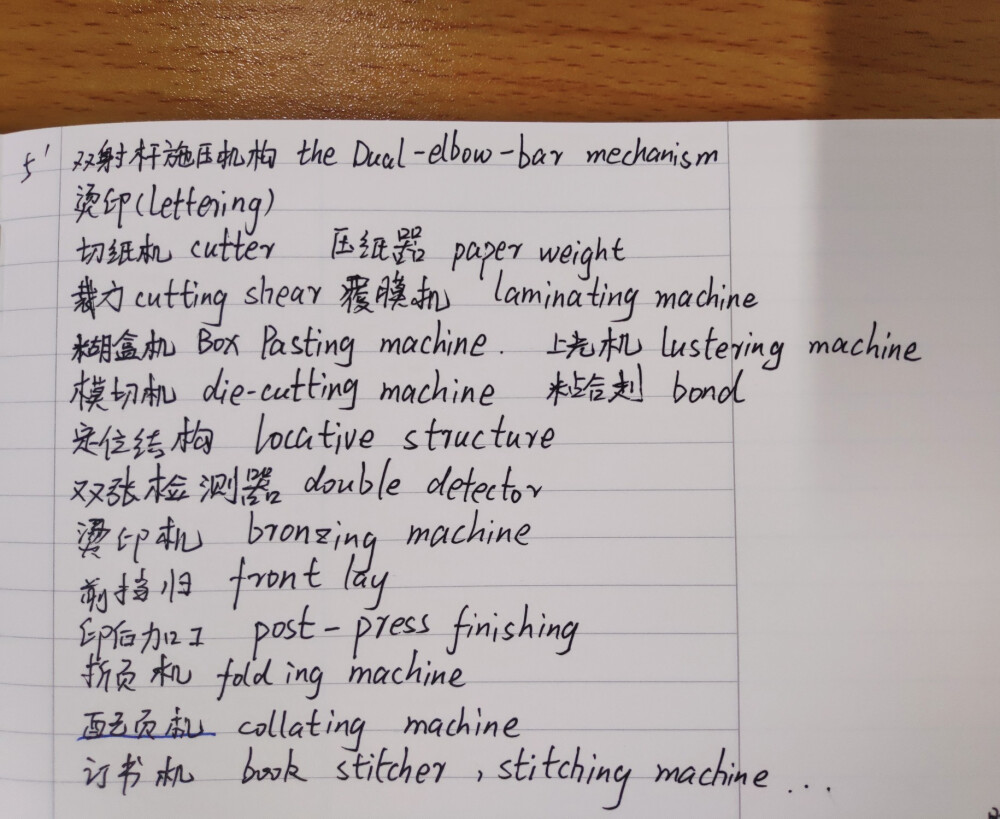 5' 双射杆施压机构 the Dual-elbow-bar mechanism
烫印(lettering)
切纸机 cutter 压纸器 paper weight
裁刀 cutting shear 覆膜机 laminating machine
糊盒机 Box Pasting machine. 上光机 lustering machine
模切机 die-cutting machine 粘合剂 bond
定位结构 locative structure
双张检测器 double detector
烫印机 bronzing machine
前挡归 front lay
印后加工 post-press finishing
折页机 folding machine
配页机 collating machine
订书机 book stitcher, stitching machine ...